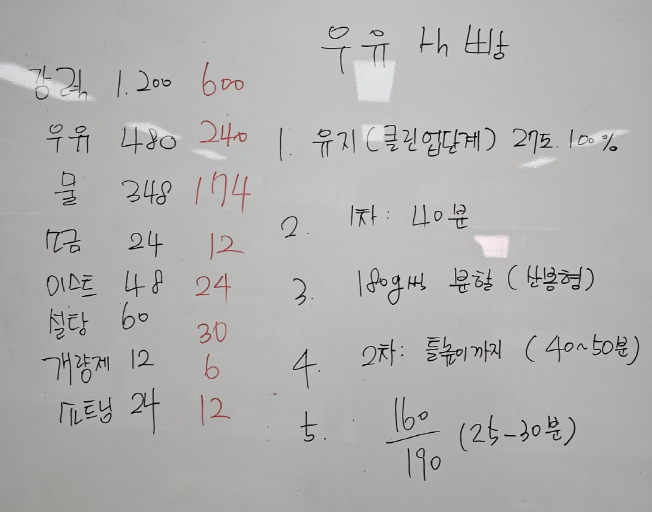 우유 식빵
강력 1.200 600
우유 480 240
물 348 174
소금 24 12
이스트 48 24
설탕 60 30
개량제 12 6
쇼트닝 24 12
1. 유지(클린업단계) 27도. 100%
2. 1차: 40분
3. 180g씩 분할 (산봉형)
4. 2차: 틀높이까지 (40~50분)
5. 160/190 (25-30분)